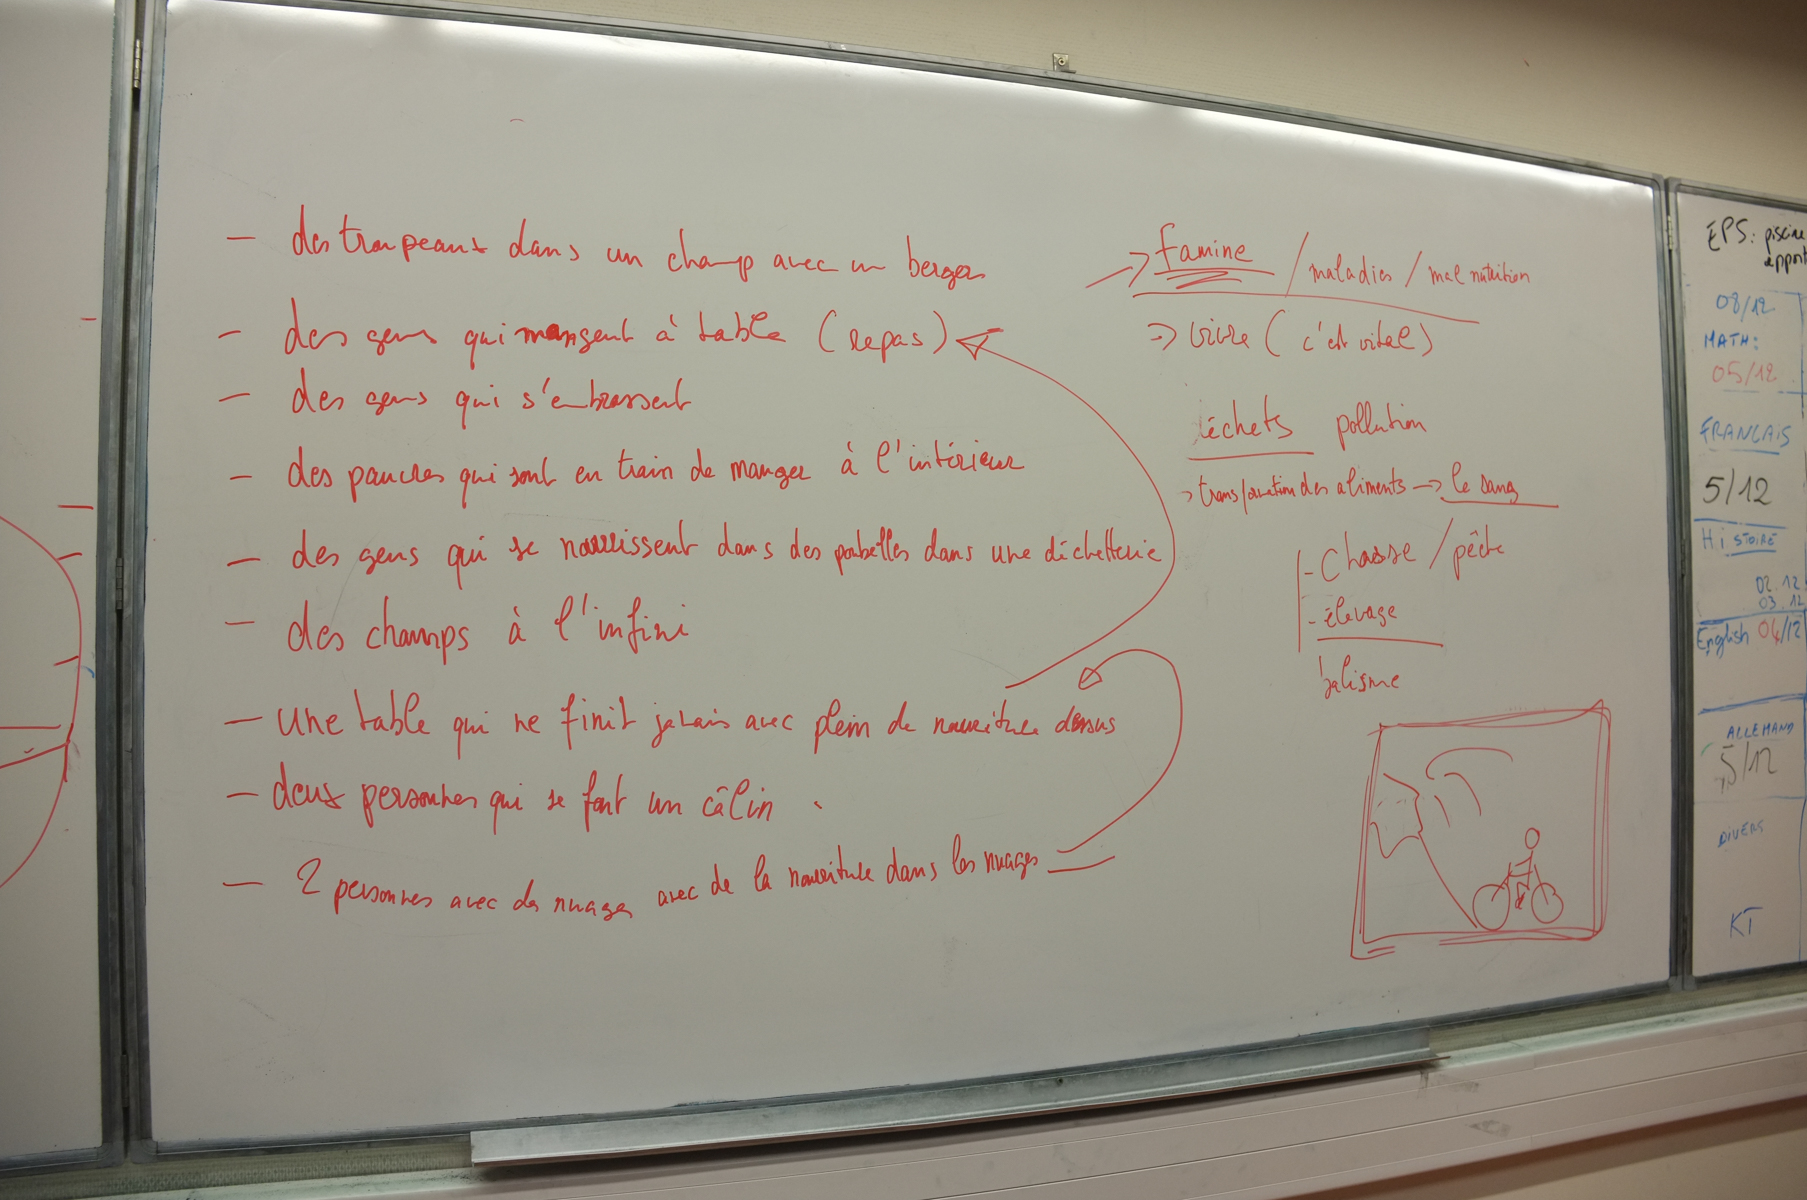 – des troupeaux dans un champ avec un berger
– des gens qui mangent à table (repas)
– des gens qui s'embrassent
– des pauvres qui sont en train de manger à l'intérieur
– des gens qui se nourrissent dans des poubelles dans une déchetterie
– des champs à l'infini
– une table qui ne finit jamais avec plein de nourriture dessus
– deux personnes qui se font un câlin.
– 2 personnes avec des nuages avec de la nourriture dans les nuages
→ famine / maladies / malnutrition
→ vivre (c'est vital)
déchets pollution
→ transformation des aliments → le sang
- Chasse / pêche
- élevage
EPS: piscine
08/12
MATH:
05/12
FRANCAIS
5/12
HISTOIRE
02.12
03.12
English 04/12
ALLEMAND
5/12
DIVERS
KT